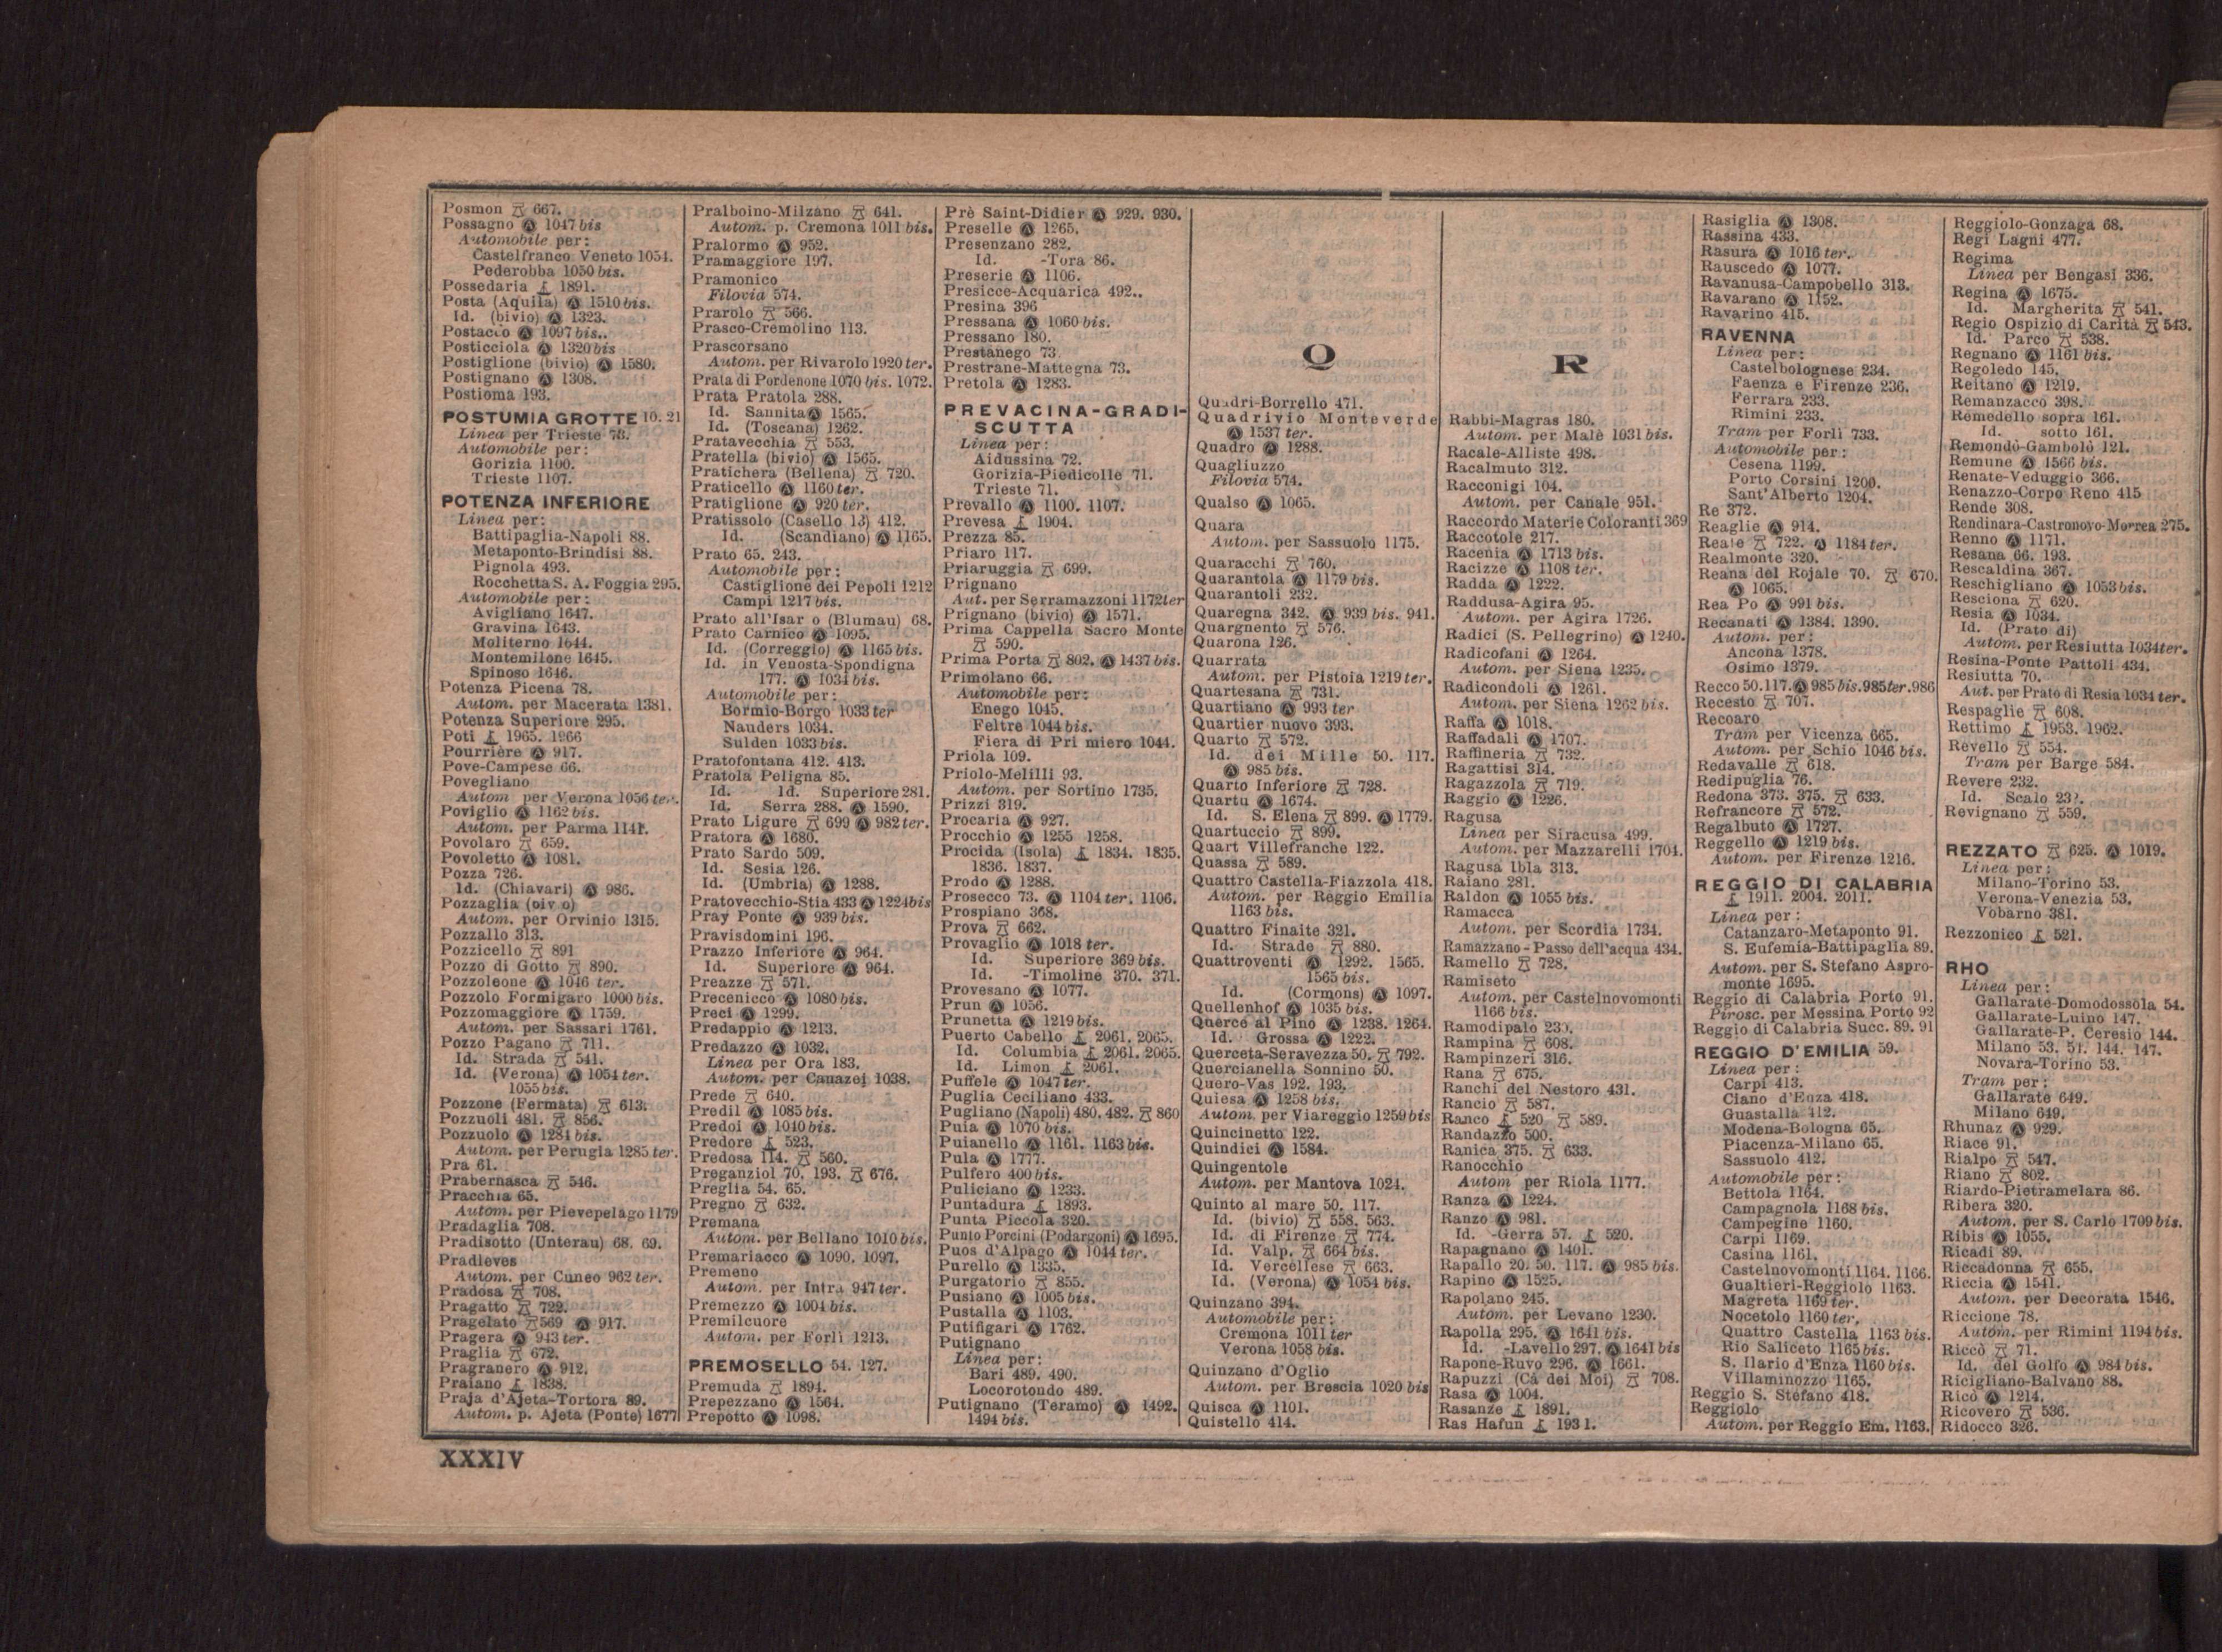 Posmon 667.
Possagno Ⓐ 1047 bis
Automobile per:
Castelfranco Veneto 1054.
Pederobba 1050 bis.
Possedaria 1891.
Posta (Aquila) Ⓐ 1510 bis.
Id. (bivio) Ⓐ 1323.
Postacco Ⓐ 1097 bis..
Posticciola Ⓐ 1320 bis
Postiglione (bivio) Ⓐ 1580.
Postignano Ⓐ 1308.
Postioma 193.
POSTUMIA GROTTE 10. 21
Linea per Trieste 73.
Automobile per:
Gorizia 1100.
Trieste 1107.
POTENZA INFERIORE
Linea per:
Battipaglia-Napoli 88.
Metaponto-Brindisi 88.
Pignola 493.
Rocchetta S. A. Foggia 295.
Automobile per:
Avigliano 1647.
Gravina 1643.
Moliterno 1644.
Montemilone 1645.
Spinoso 1646.
Potenza Picena 78.
Autom. per Macerata 1381.
Potenza Superiore 295.
Poti 1965. 1966
Pourrière Ⓐ 917.
Pove-Campese 66.
Povegliano
Autom per Verona 1056 ter.
Poviglio Ⓐ 1162 bis.
Autom. per Parma 1141.
Povolaro 659.
Povoletto Ⓐ 1081.
Pozza 726.
Id. (Chiavari) Ⓐ 986.
Pozzaglia (biv o)
Autom. per Orvinio 1315.
Pozzallo 313.
Pozzicello 891
Pozzo di Gotto 890.
Pozzoleone Ⓐ 1046 ter.
Pozzolo Formigaro 1000 bis.
Pozzomaggiore Ⓐ 1759.
Autom. per Sassari 1761.
Pozzo Pagano 711.
Id. Strada 541.
Id. (Verona) Ⓐ 1054 ter.
1055 bis.
Pozzone (Fermata) 613.
Pozzuoli 481. 856.
Pozzuolo Ⓐ 1284 bis.
Autom. per Perugia 1285 ter.
Pra 61.
Prabernasca 546.
Pracchia 65.
Autom. per Pievepelago 1179
Pradaglia 708.
Pradisotto (Unterau) 68. 69.
Pradleves
Autom. per Cuneo 962 ter.
Pradosa 708.
Pragatto 722.
Pragelato 569 Ⓐ 917.
Pragera Ⓐ 943 ter.
Praglia 672.
Pragranero Ⓐ 912.
Praiano 1838.
Praja d'Ajeta-Tortora 89.
Autom. p. Ajeta (Ponte) 1677
Pralboino-Milzano 641.
Autom. p. Cremona 1011 bis.
Pralormo Ⓐ 952.
Pramaggiore 197.
Pramonico
Filovia 574.
Prarolo 566.
Prasco-Cremolino 113.
Prascorsano
Autom. per Rivarolo 1920 ter.
Prata di Pordenone 1070 bis. 1072.
Prata Pratola 288.
Id. Sannita Ⓐ 1565.
Id. (Toscana) 1262.
Pratavecchia 553.
Pratella (bivio) Ⓐ 1565.
Pratichera (Bellena) 720.
Praticello Ⓐ 1160 ter.
Pratiglione Ⓐ 920 ter.
Pratissolo (Casello 13) 412.
Id. (Scandiano) Ⓐ 1165.
Prato 65. 243.
Automobile per:
Castiglione dei Pepoli 1212
Campi 1217 bis.
Prato all'Isar o (Blumau) 68.
Prato Carnico Ⓐ 1095.
Id. (Correggio) Ⓐ 1165 bis.
Id. in Venosta-Spondigna
177. Ⓐ 1034 bis.
Automobile per:
Bormio-Borgo 1033 ter
Nauders 1034.
Sulden 1033 bis.
Pratofontana 412. 413.
Pratola Peligna 85.
Id. Id. Superiore 281.
Id. Serra 288. Ⓐ 1590.
Prato Ligure 699 Ⓐ 982 ter.
Pratora Ⓐ 1680.
Prato Sardo 509.
Id. Sesia 126.
Id. (Umbria) Ⓐ 1288.
Pratovecchio-Stia 433 Ⓐ 1224 bis
Pray Ponte Ⓐ 939 bis.
Pravisdomini 196.
Prazzo Inferiore Ⓐ 964.
Id. Superiore Ⓐ 964.
Preazze 571.
Precenicco Ⓐ 1080 bis.
Preci Ⓐ 1299.
Predappio Ⓐ 1213.
Predazzo Ⓐ 1032.
Linea per Ora 183.
Autom. per Canazei 1038.
Prede 640.
Predil Ⓐ 1085 bis.
Predoi Ⓐ 1040 bis.
Predore 523.
Predosa 114. 560.
Preganziol 70. 193. 676.
Preglia 54. 65.
Pregno 632.
Premana
Autom. per Bellano 1010 bis.
Premariacco Ⓐ 1090. 1097.
Premeno
Autom. per Intra 947 ter.
Premezzo Ⓐ 1004 bis.
Premilcuore
Autom. per Forlì 1213.
PREMOSELLO 54. 127.
Premuda 1894.
Prepezzano Ⓐ 1564.
Prepotto Ⓐ 1098.
Prè Saint-Didier Ⓐ 929. 930.
Preselle Ⓐ 1265.
Presenzano 282.
Id. -Tora 86.
Preserie Ⓐ 1106.
Presicce-Acquarica 492..
Presina 396
Pressana Ⓐ 1060 bis.
Pressano 180.
Prestanego 73
Prestrane-Mattegna 73.
Pretola Ⓐ 1283.
PREVACINA-GRADI-
SCUTTA
Linea per:
Aidussina 72.
Gorizia-Piedicolle 71.
Trieste 71.
Prevallo Ⓐ 1100. 1107.
Prevesa 1904.
Prezza 85.
Priaro 117.
Priaruggia 699.
Prignano
Aut. per Serramazzoni 1172 ter
Prignano (bivio) Ⓐ 1571.
Prima Cappella Sacro Monte
590.
Prima Porta 802. Ⓐ 1437 bis.
Primolano 66.
Automobile per:
Enego 1045.
Feltre 1044 bis.
Fiera di Pri miero 1044.
Priola 109.
Priolo-Melilli 93.
Autom. per Sortino 1735.
Prizzi 319.
Procaria Ⓐ 927.
Procchio Ⓐ 1255 1258.
Procida (Isola) 1834. 1835.
1836. 1837.
Prodo Ⓐ 1288.
Prosecco 73. Ⓐ 1104 ter. 1106.
Prospiano 368.
Prova 662.
Provaglio Ⓐ 1018 ter.
Id. Superiore 369 bis.
Id. -Timoline 370. 371.
Provesano Ⓐ 1077.
Prun Ⓐ 1056.
Prunetta Ⓐ 1219 bis.
Puerto Cabello 2061. 2065.
Id. Columbia 2061. 2065.
Id. Limon 2061.
Puffele Ⓐ 1047 ter.
Puglia Ceciliano 433.
Pugliano (Napoli) 480. 482. 860
Puia Ⓐ 1070 bis.
Puianello Ⓐ 1161. 1163 bis.
Pula Ⓐ 1777.
Pulfero 400 bis.
Puliciano Ⓐ 1233.
Puntadura 1893.
Punta Piccola 320.
Punto Porcini (Podargoni) Ⓐ 1695.
Puos d'Alpago Ⓐ 1044 ter.
Purello Ⓐ 1335.
Purgatorio 855.
Pusiano Ⓐ 1005 bis.
Pustalla Ⓐ 1103.
Putifigari Ⓐ 1762.
Putignano
Linea per:
Bari 489. 490.
Locorotondo 489.
Putignano (Teramo) Ⓐ 1492.
1494 bis.
Q
Quadri-Borrello 471.
Quadrivio Monteverde
Ⓐ 1537 ter.
Quadro Ⓐ 1288.
Quagliuzzo
Filovia 574.
Qualso Ⓐ 1065.
Quara
Autom. per Sassuolo 1175.
Quaracchi 760.
Quarantola Ⓐ 1179 bis.
Quarantoli 232.
Quaregna 342. Ⓐ 939 bis. 941.
Quargnento 576.
Quarona 126.
Quarrata
Autom. per Pistoia 1219 ter.
Quartesana 731.
Quartiano Ⓐ 993 ter
Quartier nuovo 393.
Quarto 572.
Id. dei Mille 50. 117.
Ⓐ 985 bis.
Quarto Inferiore 728.
Quartu Ⓐ 1674.
Id. S. Elena 899. Ⓐ 1779.
Quartuccio 899.
Quart Villefranche 122.
Quassa 589.
Quattro Castella-Fiazzola 418.
Autom. per Reggio Emilia
1163 bis.
Quattro Finaite 321.
Id. Strade 880.
Quattroventi Ⓐ 1292. 1565.
1565 bis.
Id. (Cormons) Ⓐ 1097.
Quellenhof Ⓐ 1035 bis.
Querce al Pino Ⓐ 1238. 1264.
Id. Grossa Ⓐ 1222.
Querceta-Seravezza 50. 792.
Quercianella Sonnino 50.
Quero-Vas 192. 193.
Quiesa Ⓐ 1258 bis.
Autom. per Viareggio 1259 bis
Quincinetto 122.
Quindici Ⓐ 1584.
Quingentole
Autom. per Mantova 1024.
Quinto al mare 50. 117.
Id. (bivio) 558. 563.
Id. di Firenze 774.
Id. Valp. 664 bis.
Id. Vercellese 663.
Id. (Verona) Ⓐ 1054 bis.
Quinzano 394.
Automobile per:
Cremona 1011 ter
Verona 1058 bis.
Quinzano d'Oglio
Autom. per Brescia 1020 bis
Quisca Ⓐ 1101.
Quistello 414.
R
Rabbi-Magras 180.
Autom. per Malè 1031 bis.
Racale-Alliste 498.
Racalmuto 312.
Racconigi 104.
Autom. per Canale 951.
Raccordo Materie Coloranti 369
Raccotole 217.
Racenia Ⓐ 1713 bis.
Racizze Ⓐ 1108 ter.
Radda Ⓐ 1222.
Raddusa-Agira 95.
Autom. per Agira 1726.
Radici (S. Pellegrino) Ⓐ 1240.
Radicofani Ⓐ 1264.
Autom. per Siena 1235.
Radicondoli Ⓐ 1261.
Autom. per Siena 1262 bis.
Raffa Ⓐ 1018.
Raffadali Ⓐ 1707.
Raffineria 732.
Ragattisi 314.
Ragazzola 719.
Raggio Ⓐ 1226.
Ragusa
Linea per Siracusa 499.
Autom. per Mazzarelli 1704.
Ragusa Ibla 313.
Raiano 281.
Raldon Ⓐ 1055 bis.
Ramacca
Autom. per Scordia 1734.
Ramazzano-Passo dell'acqua 434.
Ramello 728.
Ramiseto
Autom. per Castelnovomonti
1166 bis.
Ramodipalo
Rampina 608.
Rampinzeri 316.
Rana 675.
Ranchi del Nestoro 431.
Rancio 587.
Ranco 520 589.
Randazzo 500.
Ranica 375. 633.
Ranocchio
Autom per Riola 1177.
Ranza Ⓐ 1224.
Ranzo Ⓐ 981.
Id. -Gerra 57. 520.
Rapagnano Ⓐ 1401.
Rapallo 20. 50. 117. Ⓐ 985 bis.
Rapino Ⓐ 1525.
Rapolano 245.
Autom. per Levano 1230.
Rapolla 295. Ⓐ 1641 bis.
Id. -Lavello 297. Ⓐ 1641 bis
Rapone-Ruvo 296. Ⓐ 1661.
Rapuzzi (Cà dei Moi) 708.
Rasa Ⓐ 1004.
Rasanze 1891.
Ras Hafun 1931.
Rasiglia Ⓐ 1308.
Rassina 433.
Rasura Ⓐ 1016 ter.
Rauscedo Ⓐ 1077.
Ravanusa-Campobello 313.
Ravarano Ⓐ 1152.
Ravarino 415.
RAVENNA
Linea per:
Castelbolognese 234.
Faenza e Firenze 236.
Ferrara 233.
Rimini 233.
Tram per Forlì 733.
Automobile per:
Cesena 1199.
Porto Corsini 1200.
Sant'Alberto 1204.
Re 372.
Reaglie Ⓐ 914.
Reale 722. Ⓐ 1184 ter.
Realmonte 320.
Reana del Rojale 70. 670.
Ⓐ 1065.
Rea Po Ⓐ 991 bis.
Recanati Ⓐ 1384. 1390.
Autom. per:
Ancona 1378.
Osimo 1379.
Recco 50.117. Ⓐ 985 bis. 985 ter. 986
Recesto 707.
Recoaro
Tram per Vicenza 665.
Autom. per Schio 1046 bis.
Redavalle 618.
Redipuglia 76.
Redona 373. 375. 633.
Refrancore 572.
Regalbuto Ⓐ 1727.
Reggello Ⓐ 1219 bis.
Autom. per Firenze 1216.
REGGIO DI CALABRIA
1911. 2004. 2011.
Linea per:
Catanzaro-Metaponto 91.
S. Eufemia-Battipaglia 89.
Autom. per S. Stefano Aspro-
monte 1695.
Reggio di Calabria Porto 91.
Pirosc. per Messina Porto 92
Reggio di Calabria Succ. 89. 91
REGGIO D'EMILIA 59.
Linea per:
Carpi 413.
Ciano d'Enza 418.
Guastalla 412.
Modena-Bologna 65.
Piacenza-Milano 65.
Sassuolo 412.
Automobile per:
Bettola 1164.
Campagnola 1168 bis.
Campegine 1160.
Carpi 1169.
Casina 1161.
Castelnovomonti 1164. 1166.
Gualtieri-Reggiolo 1163.
Magreta 1169 ter.
Nocetolo 1160 ter.
Quattro Castella 1163 bis.
Rio Saliceto 1165 bis.
S. Ilario d'Enza 1160 bis.
Villaminozzo 1165.
Reggio S. Stefano 418.
Reggiolo
Autom. per Reggio Em. 1163.
Reggiolo-Gonzaga 68.
Regi Lagni 477.
Regima
Linea per Bengasi 336.
Regina Ⓐ 1675.
Id. Margherita 541.
Regio Ospizio di Carità 543.
Id. Parco 538.
Regnano Ⓐ 1161 bis.
Regoledo 145.
Reitano Ⓐ 1219.
Remanzacco 398.
Remedello sopra 161.
Id. sotto 161.
Remondò-Gambolò 121.
Remune Ⓐ 1566 bis.
Renate-Veduggio 366.
Renazzo-Corpo Reno 415
Rende 308.
Rendinara-Castronovo-Morrea 275.
Renno Ⓐ 1171.
Resana 66. 193.
Rescaldina 367.
Reschigliano Ⓐ 1053 bis.
Resciona 620.
Resia Ⓐ 1034.
Id. (Prato di)
Autom. per Resiutta 1034 ter.
Resina-Ponte Pattoli 434.
Resiutta 70.
Aut. per Prato di Resia 1034 ter.
Respaglie 608.
Rettimo 1953. 1962.
Revello 554.
Tram per Barge 584.
Revere 232.
Id. Scalo
Revignano 559.
REZZATO 625. Ⓐ 1019.
Linea per:
Milano-Torino 53.
Verona-Venezia 53.
Vobarno 381.
Rezzonico 521.
RHO
Linea per:
Gallarate-Domodossola 54.
Gallarate-Luino 147.
Gallarate-P. Ceresio 144.
Milano 53. 51. 144. 147.
Novara-Torino 53.
Tram per:
Gallarate 649.
Milano 649.
Rhunaz Ⓐ 929.
Riace 91.
Rialpo 547.
Riano 802.
Riardo-Pietramelara 86.
Ribera 320.
Autom. per S. Carlo 1709 bis.
Ribis Ⓐ 1055.
Ricadi 89.
Riccadonna 655.
Riccia Ⓐ 1541.
Autom. per Decorata 1546.
Riccione 78.
Autom. per Rimini 1194 bis.
Riccò 71.
Id. del Golfo Ⓐ 984 bis.
Ricigliano-Balvano 88.
Ricò Ⓐ 1214.
Ricovero 536.
Ridocco 326.
XXXIV